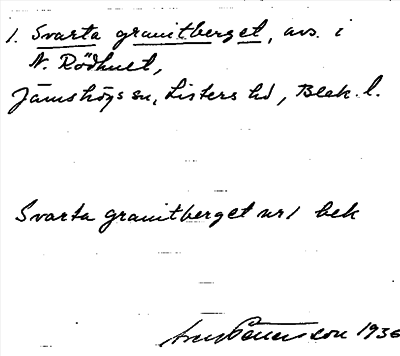 1. Svarta granitberget, avs. i
N. Rödhult,
Jämshögs sn, Listers hd, Blek. l.
Svarta granitberget nr 1 bek
1936